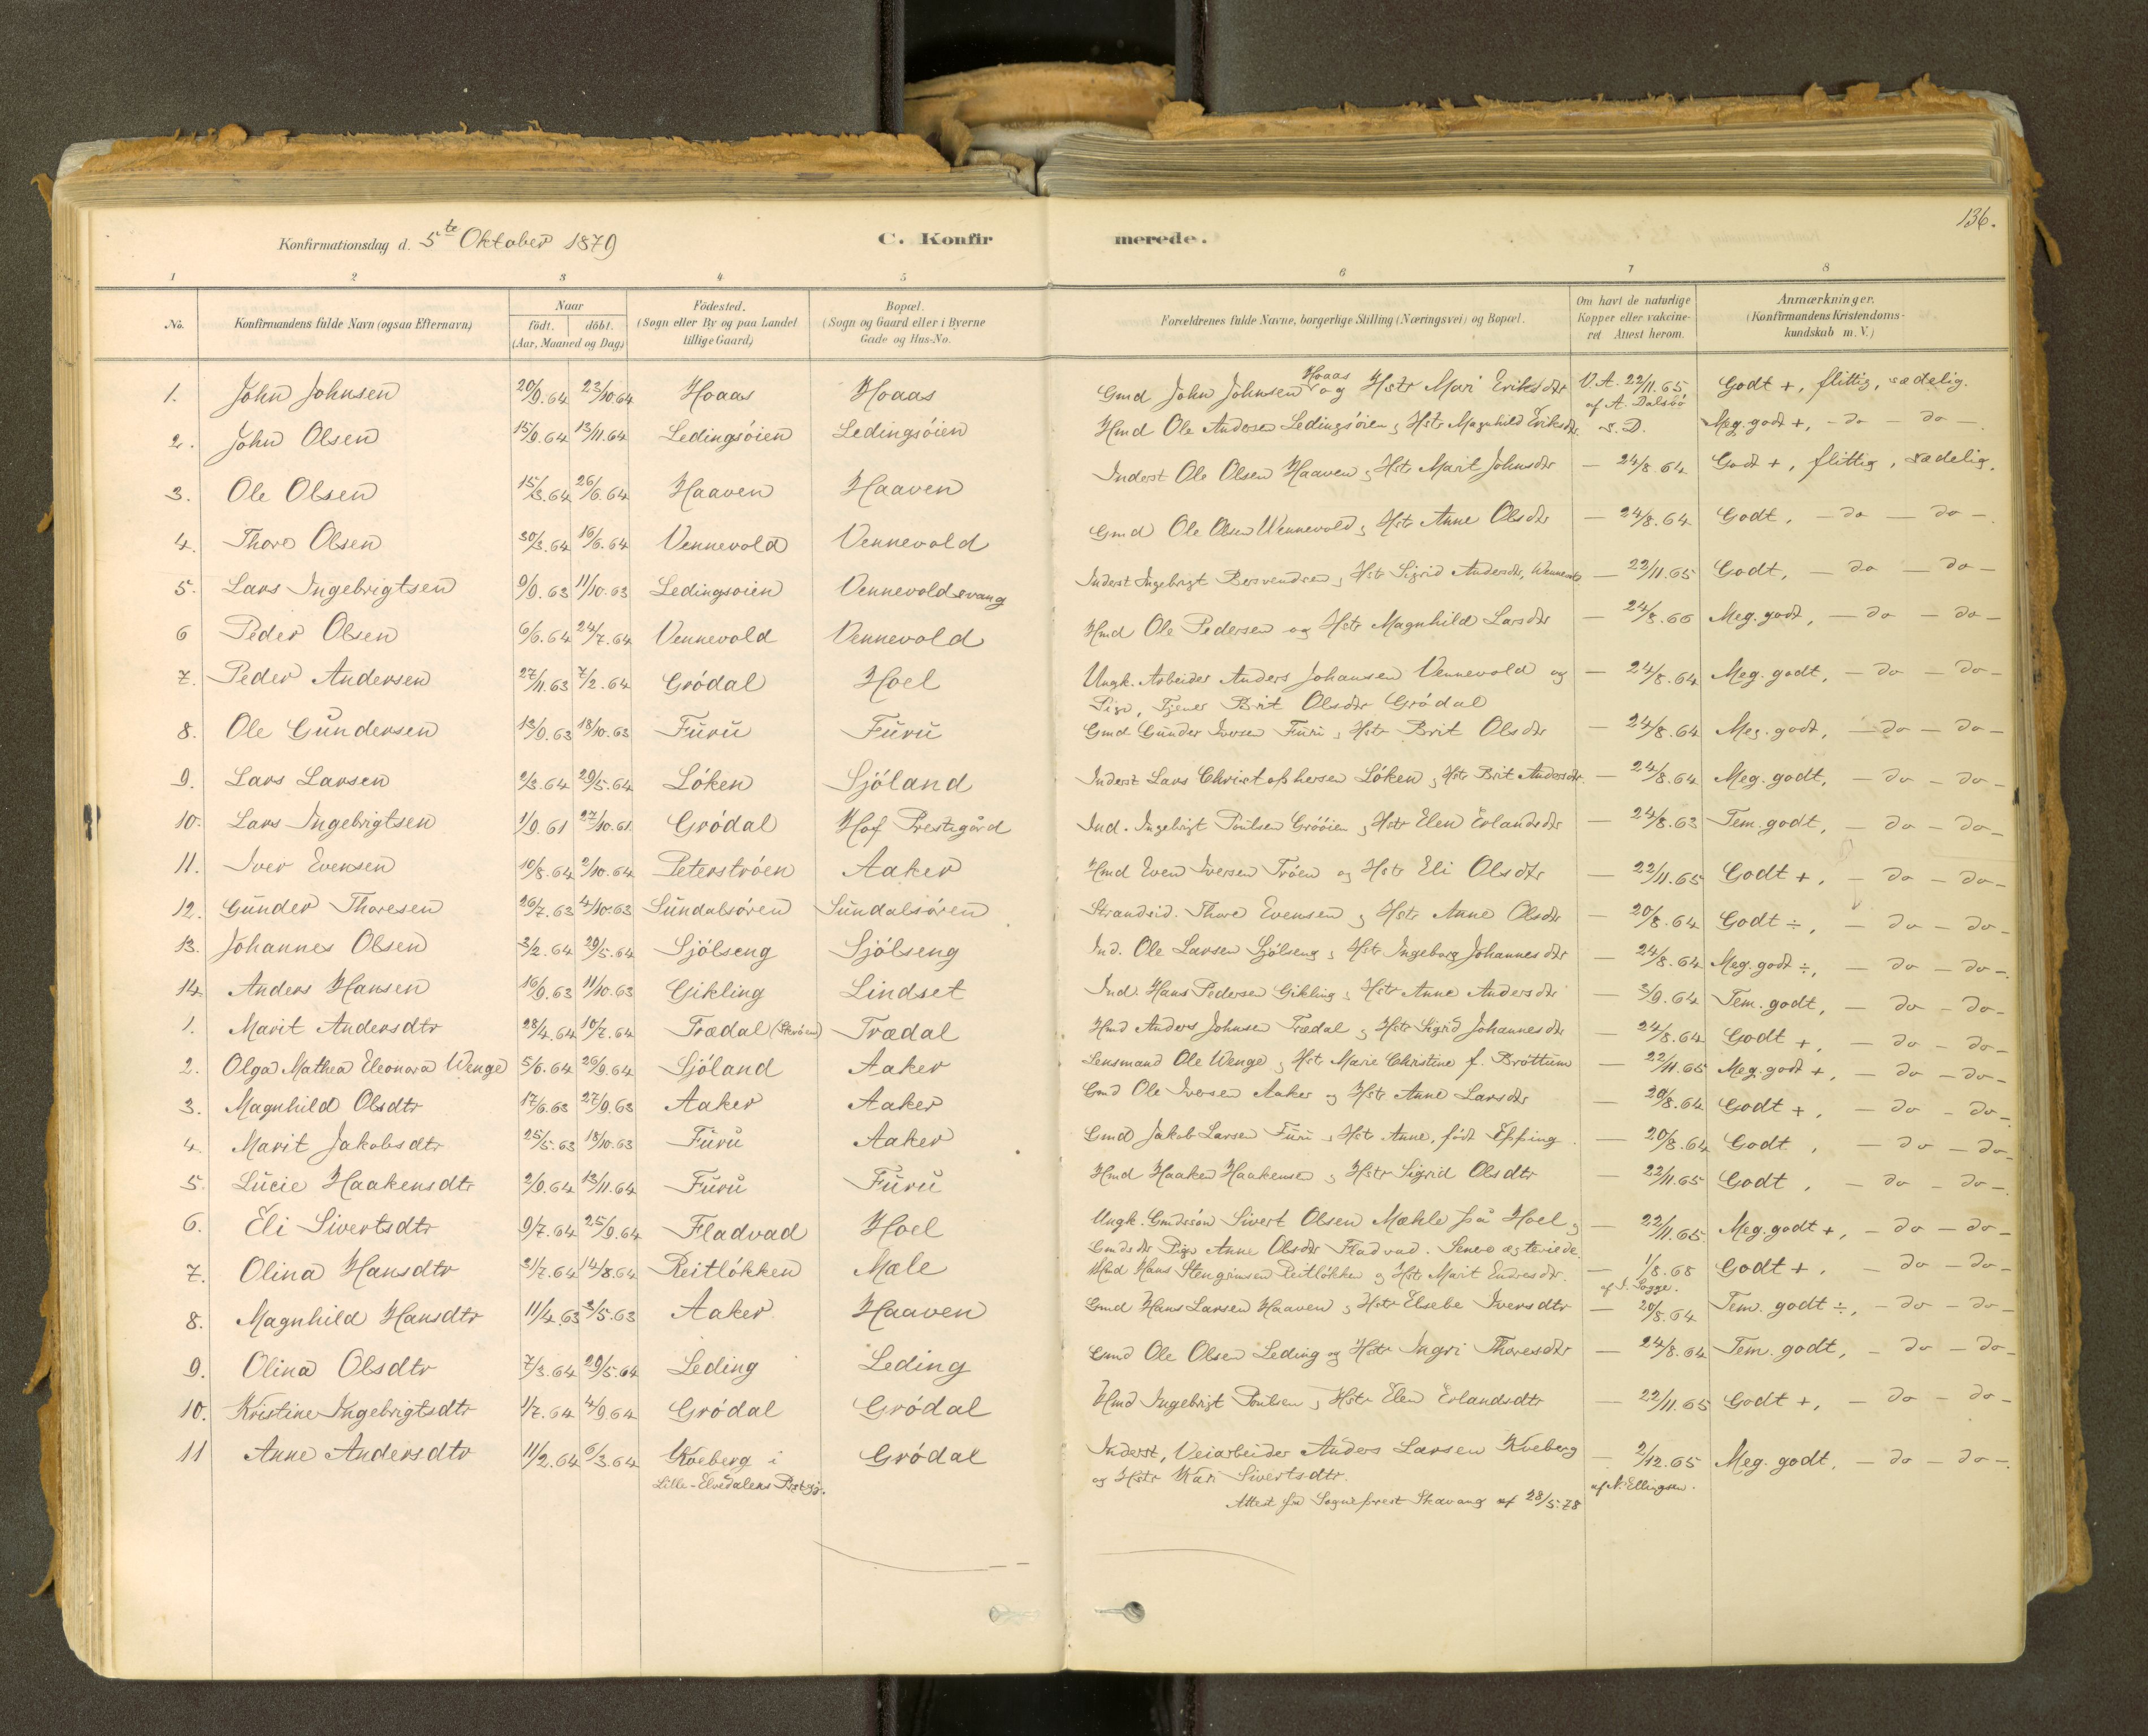 136.
Konfirmationsdag d. 5te Oktober 1879 C. Konfirmerede.
1 2 3 4 5 6 7 8
No. Konfirmandens fulde Navn (ogsaa Efternavn) Naar födt. döbt. (Aar, Maaned og Dag) Födested. (Sogn eller By og paa Landet tillige Gaard) Bopæl. (Sogn og Gaard eller i Byerne Gade og Hus-No. Forældrenes fulde Navne, borgerlige Stilling (Næringsvei) og Bopæl. Om havt de naturlige Kopper eller vakcineret Attest herom. Anmærkninger. (Konfirmandens Kristendomskundskab m. V.)
1. John Johnsen 20/9.64 23/10.64 Hoaas Hoaas Gmd John Johnsen Hoaas og Hstr Mari Eriksdtr V.A. 22/11.65 af A. Dalsbö Godt +, flittig, sædelig.
2. John Olsen 15/9.64 13/11.64 Ledingsöien Ledingsöien Hmd Ole Andersen Ledingsöien, Hstr Magnhild Eriksdtr s.D. Meg. godt +, - do - do -.
3. Ole Olsen 15/3.64 26/6.64 Haaven Haaven Inderst Ole Olsen Haaven, Hstr Marit Johnsdtr - 24/8.64 Godt +, flittig, sædelig.
4. Thore Olsen 30/3.64 16/6.64 Vennevold Vennevold Gmd Ole Olsen Wennevold, Hstr Anne Olsdtr - 24/8.64 Godt, - do - do -
5. Lars Ingebrigtsen 9/9.63 11/10.63 Ledingsoien Vennevoldsvang Inderst Ingebrigt Bersvendsen, Hstr Sigrid Andersdtr, - 22/11.65 Godt, - do - do -
6 Peder Olsen 6/6.64 24/7.64 Vennevold Vennevold Hmd Ole Pedersen og Hstr Magnhild Larsdtr - 24/8.66 Meg. godt, - do - do -
7. Peder Andersen 27/11.63 7/2.64 Grödal Hoel Ungk. Arbeider Anders Johansen Vennevold og - 24/8.64 Meg. godt, - do - do -
Pige, Tjener Brit Olsdtr Grödal
8. Ole Gundersen 13/9.63 18/10.63 Furu Furu Gmd Gunder Iversen Furu, Hstr Brit Olsdtr - 24/8.64 Meg. godt, - do - do -
9. Lars Larsen 2/3.64 29/5.64 Löken Sjöland Inderst Lars Christophersen Löken, Hstr Brit Andersdtr. - 24/8.64 Meg. godt, - do - do -
10. Lars Ingebrigtsen 1/9.61 27/10.61 Grödal Hof Prestegård Ind. Ingebrigt Poulsen Grööien, Hstr Elen Erlandsdtr - 24/8.63 Tem. godt, - do - do -
11. Iver Evensen 10/8.64 2/10.64 Peterströen Aaker Hmd Even Iversen Tröen og Hstr Eli Olsdtr - 22/11.65 Godt +, - do - do -
12. Gunder Thoresen 26/7.63 4/10.63 Sundalsören Sundalsören Strandsid. Thore Evensen, Hstr Anne Olsdtr - 20/8.64 Godt ÷, - do - do -
13. Johannes Olsen 3/2.64 29/5.64 Sjölseng Sjölseng Ind. Ole Larsen Sjölseng, Hstr Ingeborg Johannesdtr - 24/8.64 Meg. godt ÷, - do - do -.
14. Anders Hansen 16/9.63 11/10.63 Gikling Lindset Ind. Hans Pedersen Gikling, Hstr Anne Andersdtr - 3/9.64 Tem. godt, - do - do -
1. Marit Andersdtr 28/4.64 10/7.64 Trædal (Skröen) Trædal Hmd Anders Johnsen Trædal, Hstr Sigrid Johannesdtr - 24/8.64 Godt +, - do - do -
2. Olga Mathea Eleonora Wenge 5/6.64 26/9.64 Sjöland Aaker Lensmand Ole Wenge, Hstr Marie Christine f. Bröttum - 22/11.65 Meg. godt +, - do - do -
3. Magnhild Olsdtr 17/6.63 27/9.63 Aaker Aaker Gmd Ole Iversen Aaker og Hstr Anne Larsdtr - 20/8.64 Godt +, - do - do -
4. Marit Jakobsdtr 25/5.63 18/10.63 Furu Aaker Gmd Jakob Larsen Furu, Hstr Anne, född Epping. - 20/8.64 Godt, - do - do -
5. Lucie Haakensdtr 2/9.64 13/11.64 Furu Furu Hmd Haaken Haakensen, Hstr Sigrid Olsdtr - 22/11.65 Godt, - do - do -
6. Eli Sivertsdtr 9/7.64 25/9.64 Fladvad Hoel Ungk. Gmdssön Sivert Olsen Mæhle på Hoel, - 22/11.65. Meg. godt +, - do - do -
Gmdsdtr Pige Anne Olsdtr Fladvad. Senere ægteviede.
7. Olina Hansdtr 31/7.64 14/8.64 Reitlökken Mæle Hmd Hans Stengrimsen Reitlökken og Hstr Marit Endresdtr. - 1/8.68 af I. Sogge. Godt +. - do - do -
8. Magnhild Hansdtr 11/4.63 3/5.63 Aaker Haaven Gmd Hans Larsen Haaven, Hstr Elsebe Iversdtr - 20/8.64 Tem. godt ÷, - do - do -
9. Olina Olsdtr 7/3.64 29/5.64 Leding Leding Gmd Ole Olsen Leding og Hstr Ingri Thoresdtr - 24/8.64 Tem. godt, - do - do -
10. Kristine Ingebrigtsdtr 1/7.64 4/9.64 Grödal Grödal Hmd Ingebrigt Poulsen, Hstr Elen Erlandsdtr - 22/11.65 Godt +, - do - do -
11 Anne Andersdtr 11/2.64 6/3.64 Kveberg i Grödal Inderst, Veiarbeider Anders Larsen Kveberg - 2/12.65 Meg. godt, - do - do -.
Lille-Elvedalens Prstgj. og Hstr Kari Sivertsdtr. af N. Ellingsen.
Attest fra Sogneprest Skavang af 28/5.78